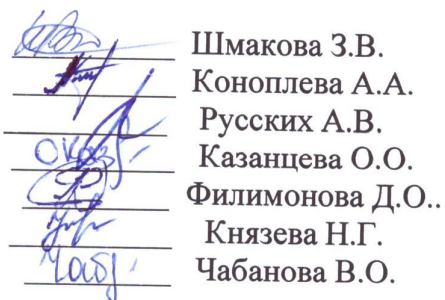 Шмакова З.В.
Коноплева А.А.
Русских А.В.
Казанцева О.О.
Филимонова Д.О..
Князева Н.Г.
Чабанова В.О.